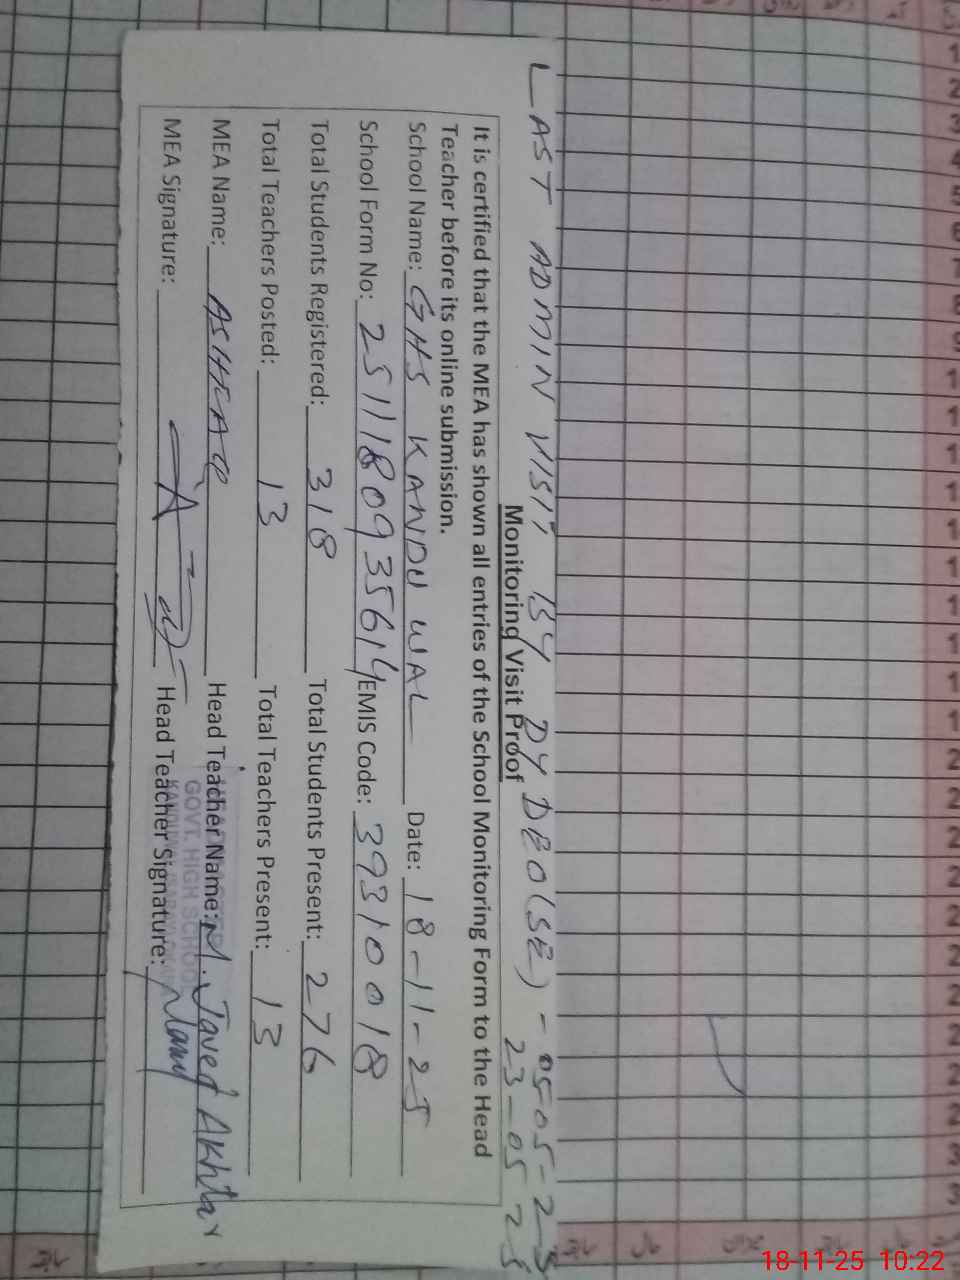 LAST ADMIN VISIT BY DY DEO(SE) - 05-05-25
23-05-25
Monitoring Visit Proof
It is certified that the MEA has shown all entries of the School Monitoring Form to the Head
Teacher before its online submission.
School Name: GHS KANDU WAL Date: 18-11-25
School Form No: 2511180935614 EMIS Code: 39310018
Total Students Registered: 318 Total Students Present: 276
Total Teachers Posted: 13 Total Teachers Present: 13
MEA Name: ASHFAQ Head Teacher Name: M. Javed Akhtar
GOVT. HIGH SCHOOL
MEA Signature: Head Teacher Signature:
18-11-25 10:22